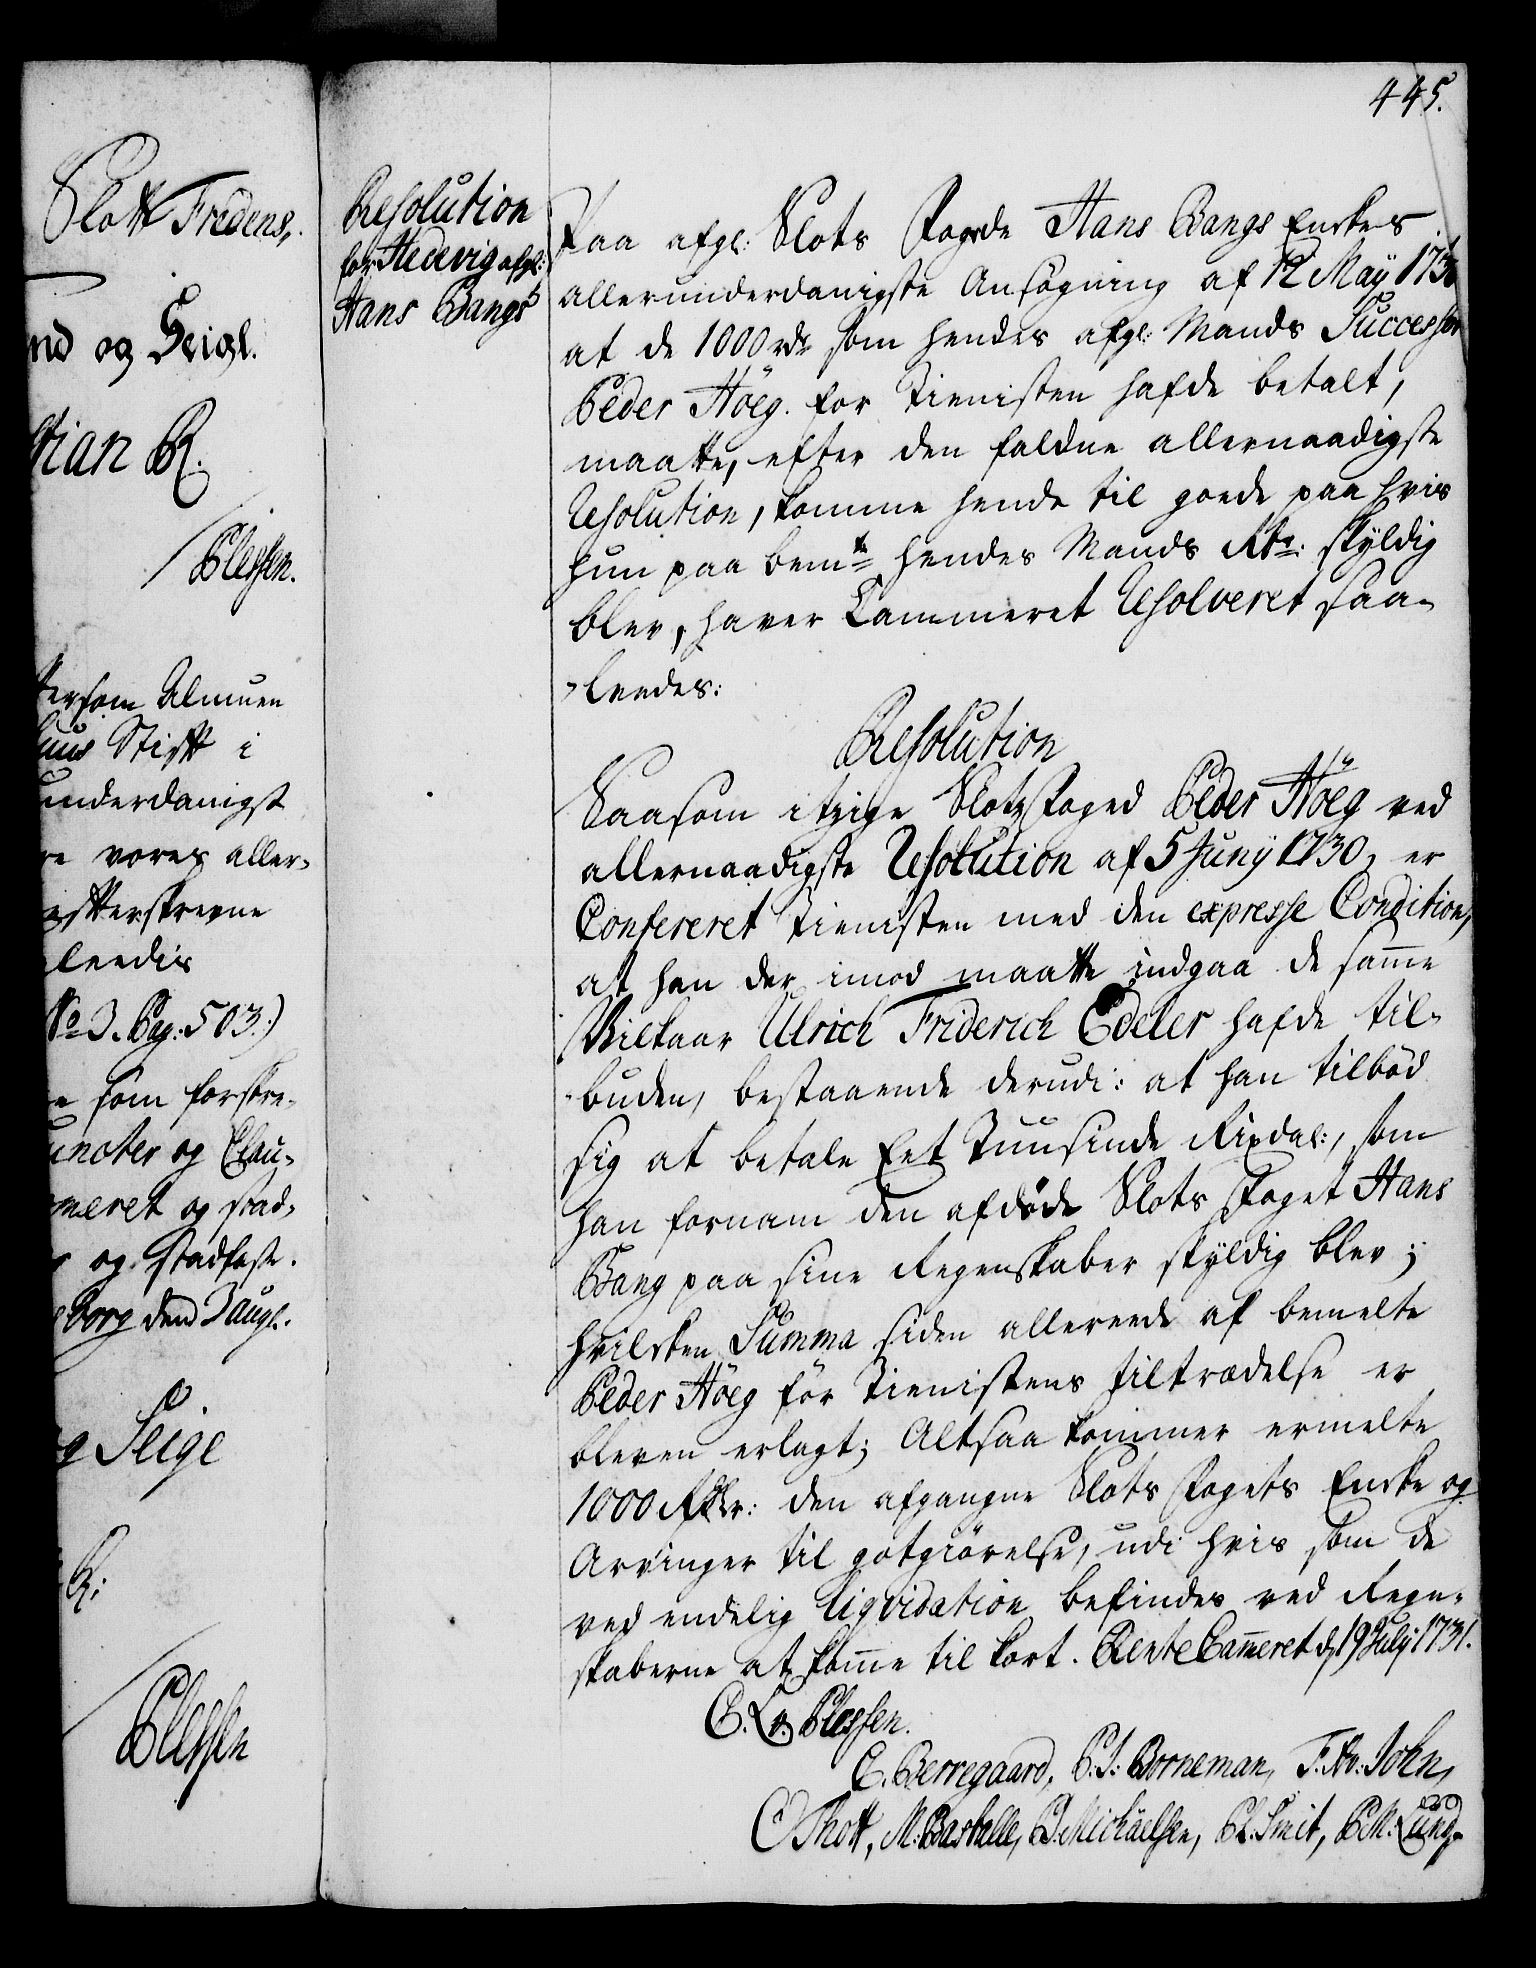 Slott Fredens,
nd og Seigl.
tian R.
/ Plessen.
tersom Almuen
huus Stift i
underdanigst
re vores aller-
efterskrevne
leedis
No 3. Pag: 503.)
e som forskre-
uncter og Clau-
meret og stad-
og stadfæste.
borg den 3 augl.
g Seigl
R:
Plessen
445.
Resolution
for Hedevig afgl:
Hans Bangs
Paa afgl: Slots Fogde Hans Bangs Enkes
allerunderdanigste Ansøgning af 12 Maÿ 173
at de 1000 rdr som hendes afgl: Mands Successor
Peder Höeg for Tienisten hafde betalt,
maatte, efter den faldne allernaadigste
Resolution, komme hende til goede paa hvis
hun paa bemte hendes Mands skyldig
blev, haver Cammeret Resolveret saa-
-leedes:
Resolution
Saasom itzige Slots Foged Peder Höeg ved
allernaadigste Resolution af 5 Juny 1730, er
Confereret Tienisten med den expresse Condition,
at han der imod maatte indgaa de samme
Vilkaar Ulrich Friderich Edeler hafde til-
-buden, bestaaende derudi: at han tilbød
sig at betale Eet Tuusinde Rixdal:, som
han fornam den afdøde Slots Foget Hans
Bang paa sine Regenskaber skyldig blev;
hvilcken Summa siden allereede af bemelte
Peder Höeg før Tienistens tiltrædelse er
bleven erlagt; Altsaa kommer ermelte
1000 Rdlr: den afgangne Slots Fogets Encke og
Arvinger til gotgiørelse, udi hvis som de
ved endelig Liqvidation befindes ved Regn-
skaberne at komme til kort. Rente Cammeret d. 19 July 1731.
C. L. v. Plessen.
C. Berregaard, P. J: Borneman, F. Av: John,
O Thott, M: Barhalle, P. Michäelsen, Pl. Smit, P. M: Lund.